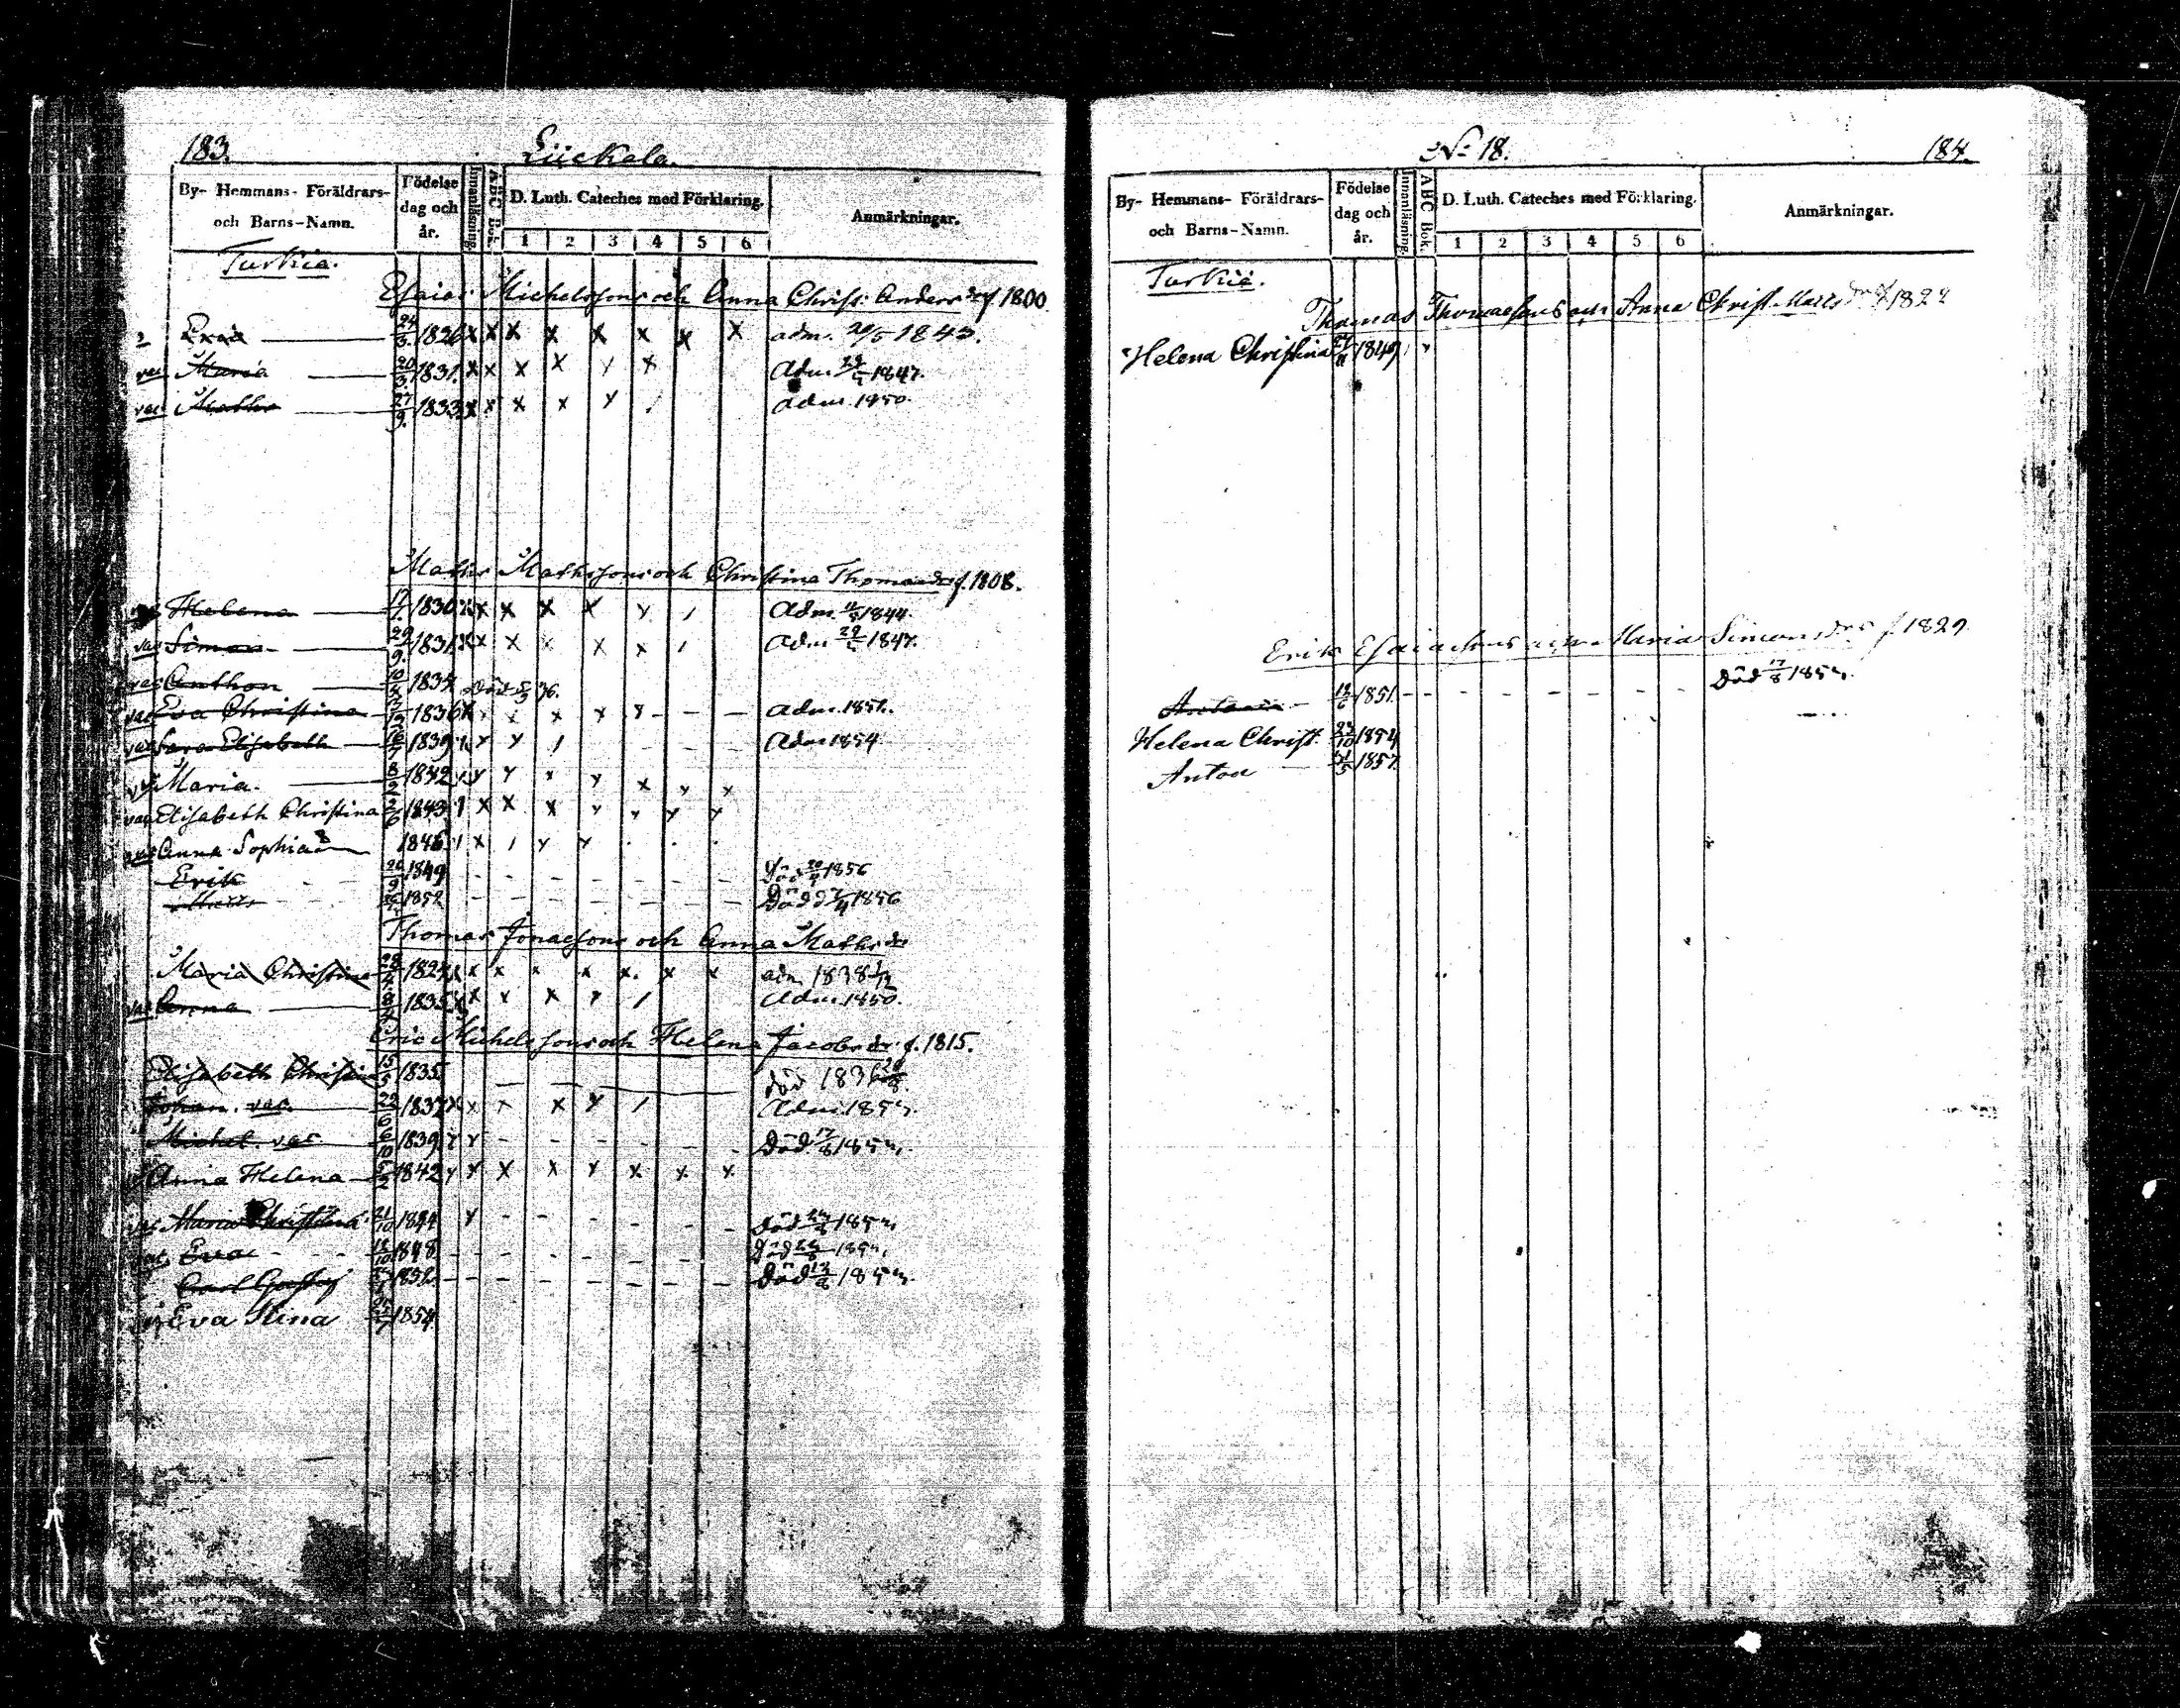 183.
Lückala.
By- Hemmans- Föräldrars- och Barns-Namn.
Födelse dag och år.
Innanläsning.
ABC Bok.
D. Luth. Cateches med Förklaring.
1 2 3 4 5 6
Anmärkningar.
Turkia.
Esaias Michelssons och Anna Chris: Andersdr f. 1800
1826 x x x x x x x x adm. 1843.
vac Maria 20/3 1831. x x x x y x Adm 1847.
vac Maths 27/9. 1833 x x x x y / adm. 1850.
Maths Mathssons och Christina Thomasdr f. 1808.
Helena 1830 x x x x y / Adm. 1844.
vac Simon 29/9. 1831 x x x x x / Adm 1847.
vac Anthon 1834 Död 36.
vac Eva Christina 1836 x x x y y - - - Adm. 1851.
vac Sara Elisabeth 1839 y y / - - - Adm 1854
Maria. 1842 y y y x y x y x
vac Elisabeth Christina 2/6 1843 / x x x y y y y
vac Anna Sophia 1846 / x / y y . . .
Erik 1849 - - - - - - Död 1856
1852 - - - - - - - Död 1856
Thomas Jonaessons och Anna Mathsdr
Maria Christina 1824 x x x x x x x adm 1838
vac Anna 8/4 1835 x x y x y / Adm. 1850.
Eric Michelssons och Helena Jacobsdr f. 1815.
Elisabeth Christina 15/5 1835. död 1836
Johan. vac. 1837 x x x x y / Adm 1853.
Michel. vac 6/10 1839 y y - - - - - Död 17/8 1853.
Anna Helena 5/2 1842 y y x x y x y x
vac Maria Christina 21/10 1844 y - - - - - Död 1853
vac Eva 12/10 1848 - - - - - - - Död 1853.
Carl Gustaf 1852 - - - - - - - Död 1853.
Eva Stina 1854
No 18.
184.
By- Hemmans- Föräldrars- och Barns-Namn.
Födelse dag och år.
Innanläsning.
ABC Bok.
D. Luth. Cateches med Förklaring.
1 2 3 4 5 6
Anmärkningar.
Turkia.
Thomas Thomaessons och Anna Christ. Matsdr f 1822
Helena Christina 1849
Erik Esaiaessons och Maria Simonsdr f 1829.
1851 - - - - - - - Död 17/8 1853.
Helena Christ. 23/10 1854
Anton 1857